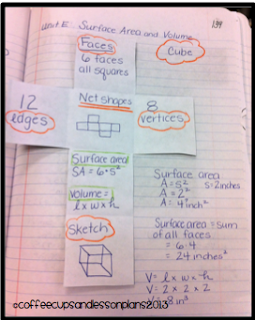 Unit E: Surface Area and Volume
139
Faces
6 faces
all squares
Cube
12
edges
Net shapes
8
vertices
Surface area
SA = 6·s²
Volume =
l x w x h
Sketch
Surface area
A = s² s=2inches
A = 2²
A = 4 inch²
Surface area = sum
of all faces
= 6·4
= 24 inches²
V = l x w x h
V = 2 x 2 x 2
8 in³
©coffeecupsandlessonplans2013